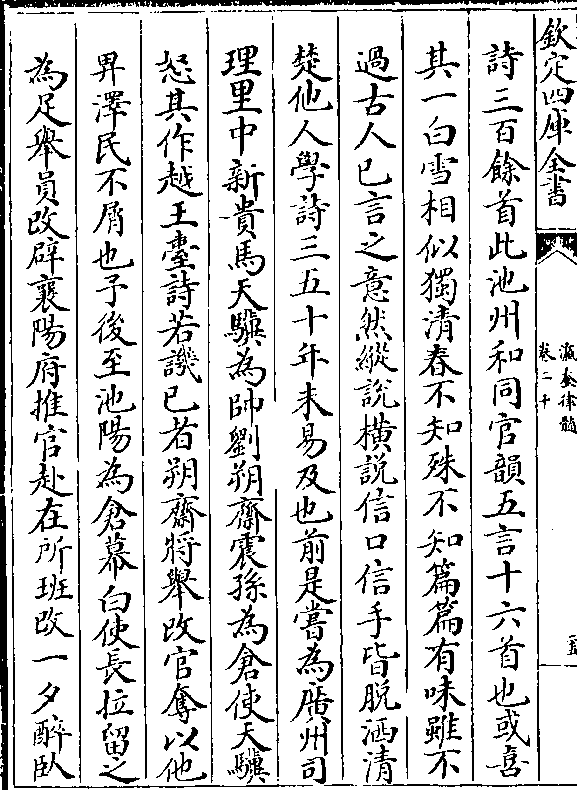 欽定四庫全書
瀛奎律髓
卷二十
詩三百餘首此池州和同官韻五言十六首也或喜
其一白雪相似獨清春不知殊不知篇篇有味雖不
過古人已言之意然縱說橫說信口信手皆脫洒清
楚他人學詩三五十年未易及也前是嘗為廣州司
理里中新貴馬天驥為帥劉朔齋震孫為倉使天驥
怒其作越王臺詩若譏已者朔齋將舉改官奪以他
畀澤民不屑也予後至池陽為倉幕白使長拉留之
為足舉員改辟襄陽府推官赴在所班改一夕醉臥